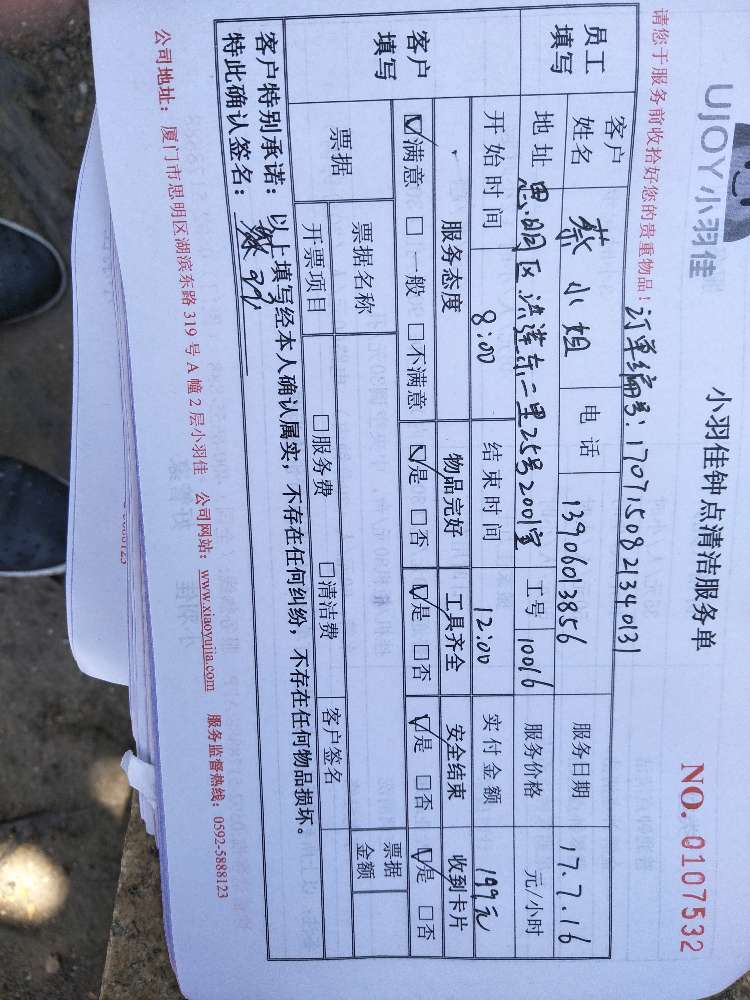 UJOY小羽佳
小羽佳钟点清洁服务单
NO. 0107532
请您于服务前收拾好您的贵重物品！
订单编号：1707150821340131
员工填写
客户姓名 蔡小姐 电话 13906013856 服务日期 17.7.16
地址 思明区洪莲东二里25号2001室 工号 10016 服务价格 元/小时
开始时间 8:00 结束时间 12:00 实付金额 199元
客户填写
服务态度 物品完好 工具齐全 安全结束 收到卡片
☑满意 □一般 □不满意 ☑是 □否 ☑是 □否 ☑是 □否 ☑是 □否
票据 票据名称 票据金额
开票项目 □服务费 □清洁费 客户签名
客户特别承诺：以上填写经本人确认属实，不存在任何纠纷，不存在任何物品损坏。
特此确认签名：
公司地址：厦门市思明区湖滨东路319号A幢2层小羽佳 公司网站：www.xiaoyujia.com 服务监督热线：0592-5888123